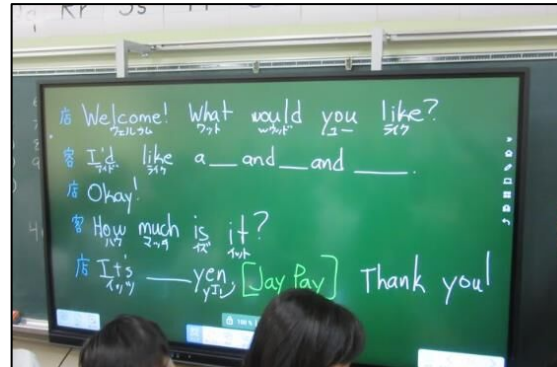 Rr Ss
店 Welcome! What would you like?
ウェルカム ワット wウッド ユー ライク
客 I'd like a __ and __ and ____.
アイド ライク
店 Okay!
客 How much is it?
ハウ マッチ イズ イット
店 It's ____ yen [Jay Pay] Thank you!
イッツ yエン